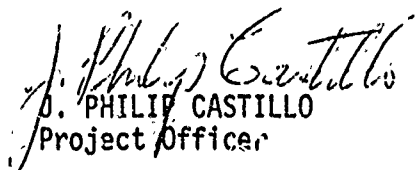 J. Philip Castillo
J. PHILIP CASTILLO
Project Officer